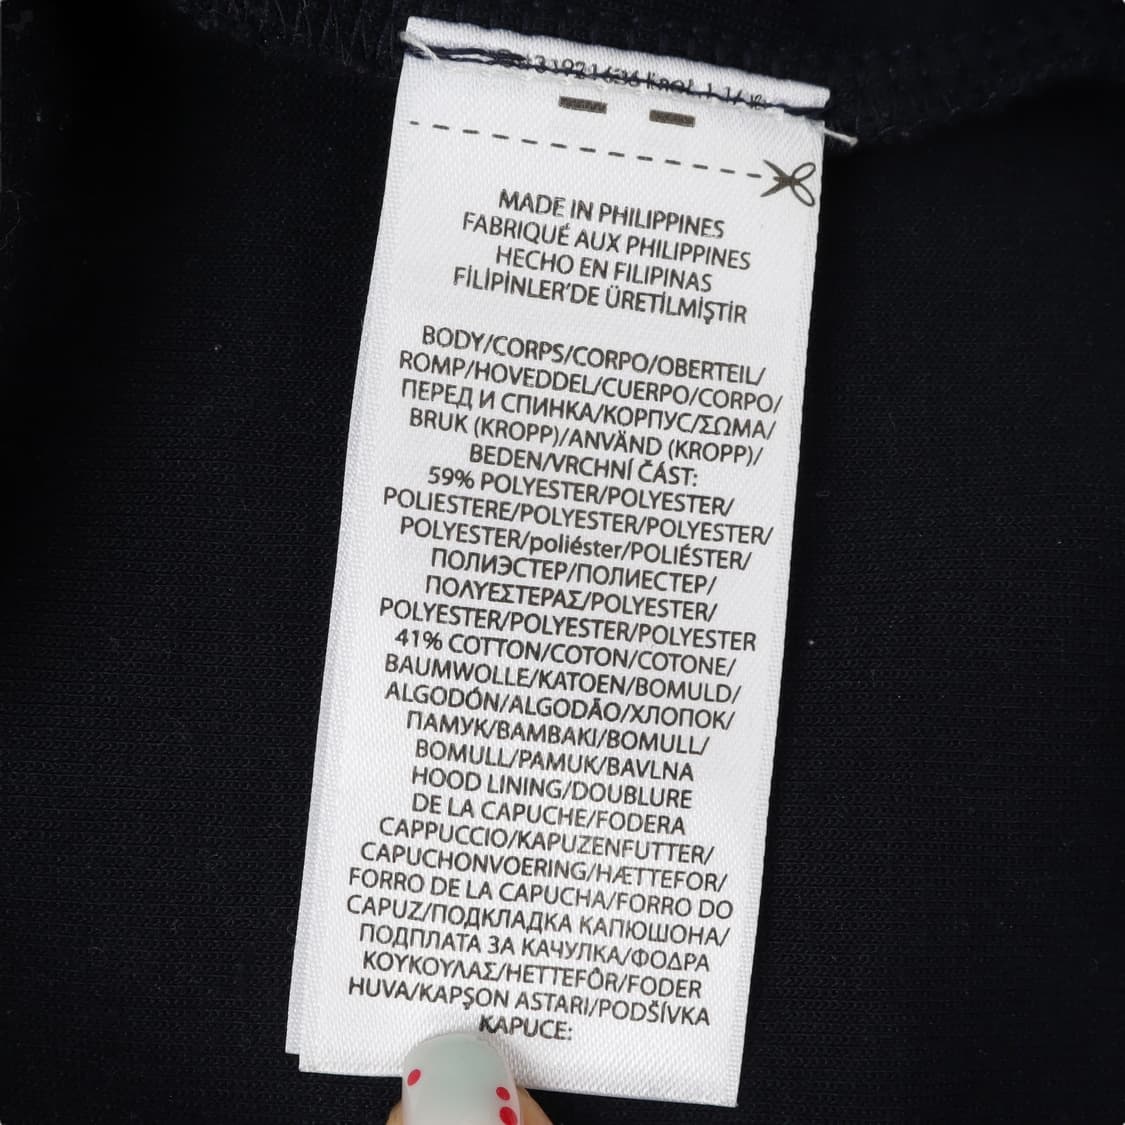 MADE IN PHILIPPINES
FABRIQUÉ AUX PHILIPPINES
HECHO EN FILIPINAS
FİLİPİNLER'DE ÜRETİLMİŞTİR
BODY/CORPS/CORPO/OBERTEIL/
ROMP/HOVEDDEL/CUERPO/CORPO/
ПЕРЕД И СПИНКА/КОРПУС/ΣΩΜΑ/
BRUK (KROPP)/ANVÄND (KROPP)/
BEDEN/VRCHNÍ ČÁST:
59% POLYESTER/POLYESTER/
POLIESTERE/POLYESTER/POLYESTER/
POLYESTER/poliéster/POLIÉSTER/
ПОЛИЭСТЕР/ПОЛИЕСТЕР/
ΠΟΛΥΕΣΤΕΡΑΣ/POLYESTER/
POLYESTER/POLYESTER/POLYESTER
41% COTTON/COTON/COTONE/
BAUMWOLLE/KATOEN/BOMULD/
ALGODÓN/ALGODÃO/ХЛОПОК/
ПАМУК/ΒΑΜΒΑΚΙ/BOMULL/
BOMULL/PAMUK/BAVLNA
HOOD LINING/DOUBLURE
DE LA CAPUCHE/FODERA
CAPPUCCIO/KAPUZENFUTTER/
CAPUCHONVOERING/HÆTTEFOR/
FORRO DE LA CAPUCHA/FORRO DO
CAPUZ/ПОДКЛАДКА КАПЮШОНА/
ПОДПЛАТА ЗА КАЧУЛКА/ΦΟΔΡΑ
ΚΟΥΚΟΥΛΑΣ/HETTEFÔR/FODER
HUVA/KAPŞON ASTARI/PODŠÍVKA
KAPUCE: